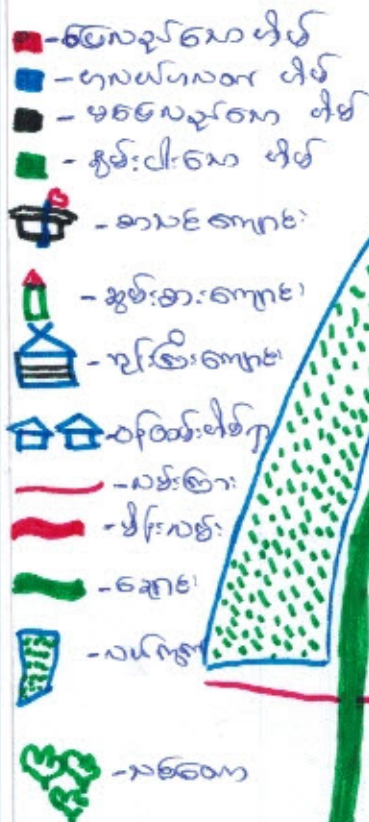 -ပြေလည်သော အိမ်
-ဟလယ်ဟလတ အိမ်
-မပြေလည်သော အိမ်
-နွမ်းပါးသော အိမ်
-စာသင်ကျောင်း
-ဆွမ်းစားကျောင်း
-ဘုန်းကြီးကျောင်း
-ဝန်ထမ်းအိမ်ရာ
-လမ်းကြား
-မိန်းလမ်း
-ချောင်း
-လယ်ကွက်
-သစ်တော